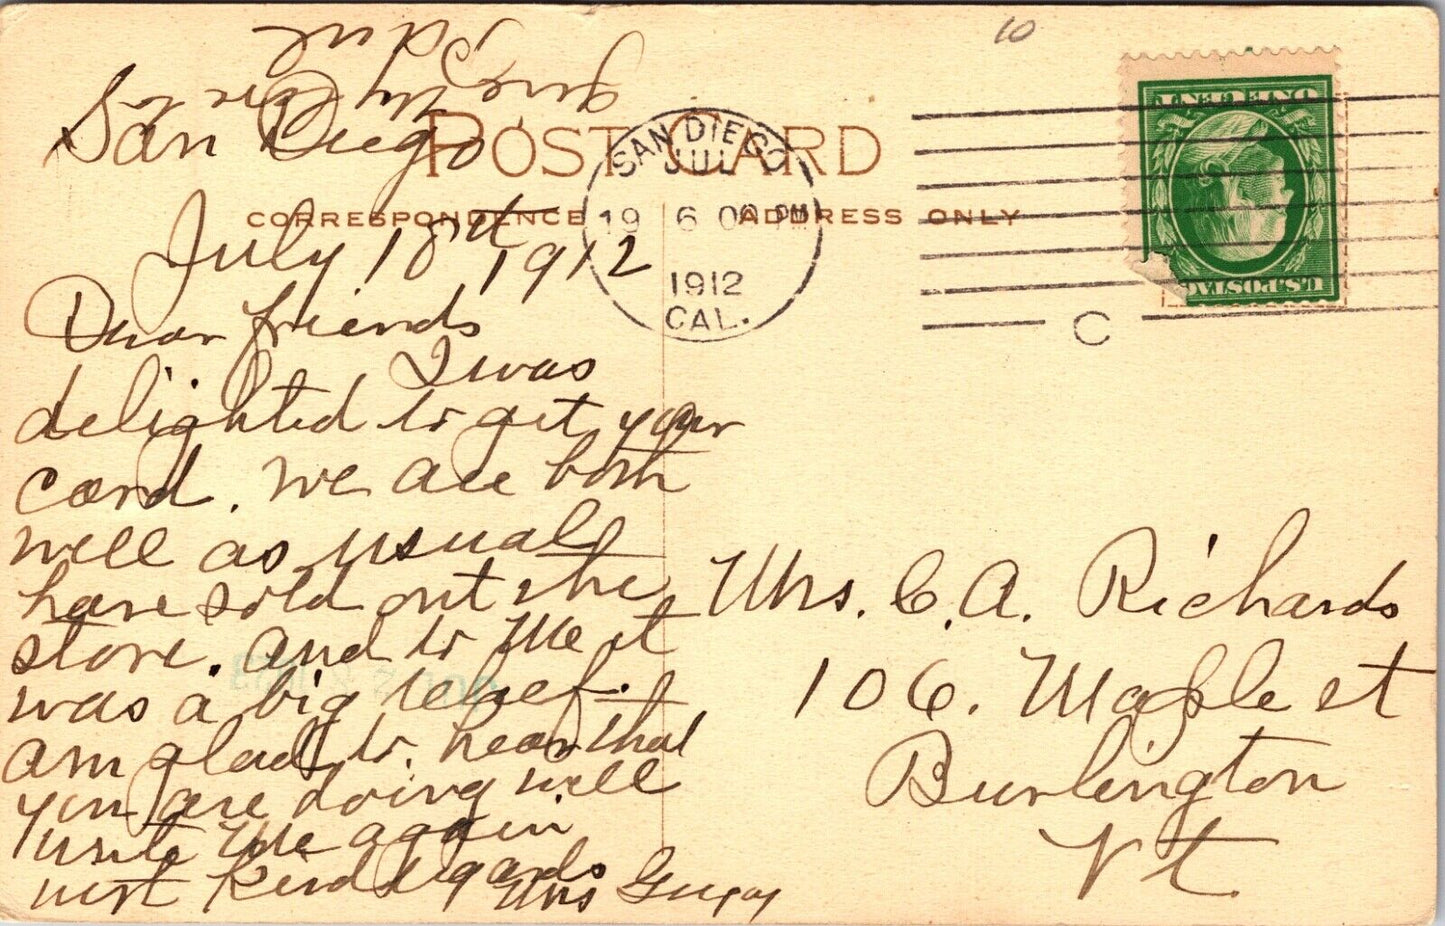 10
give my love to
Jack
San Diego
POST CARD
SAN DIEGO
JUL
19 6 00 PM
1912
CAL.
C
ONE CENT
U.S. POSTAG
CORRESPONDENCE
ADDRESS ONLY
July 18st 1912
Dear friends
I was
delighted to get your
card. we are both
well as usual
have sold out the
store. and to me it
was a big relief.
am glad to hear that
you are doing well
write me again
with Kind regards
Mrs
Mrs. C. A. Richards
106. Maple st
Burlington
Vt